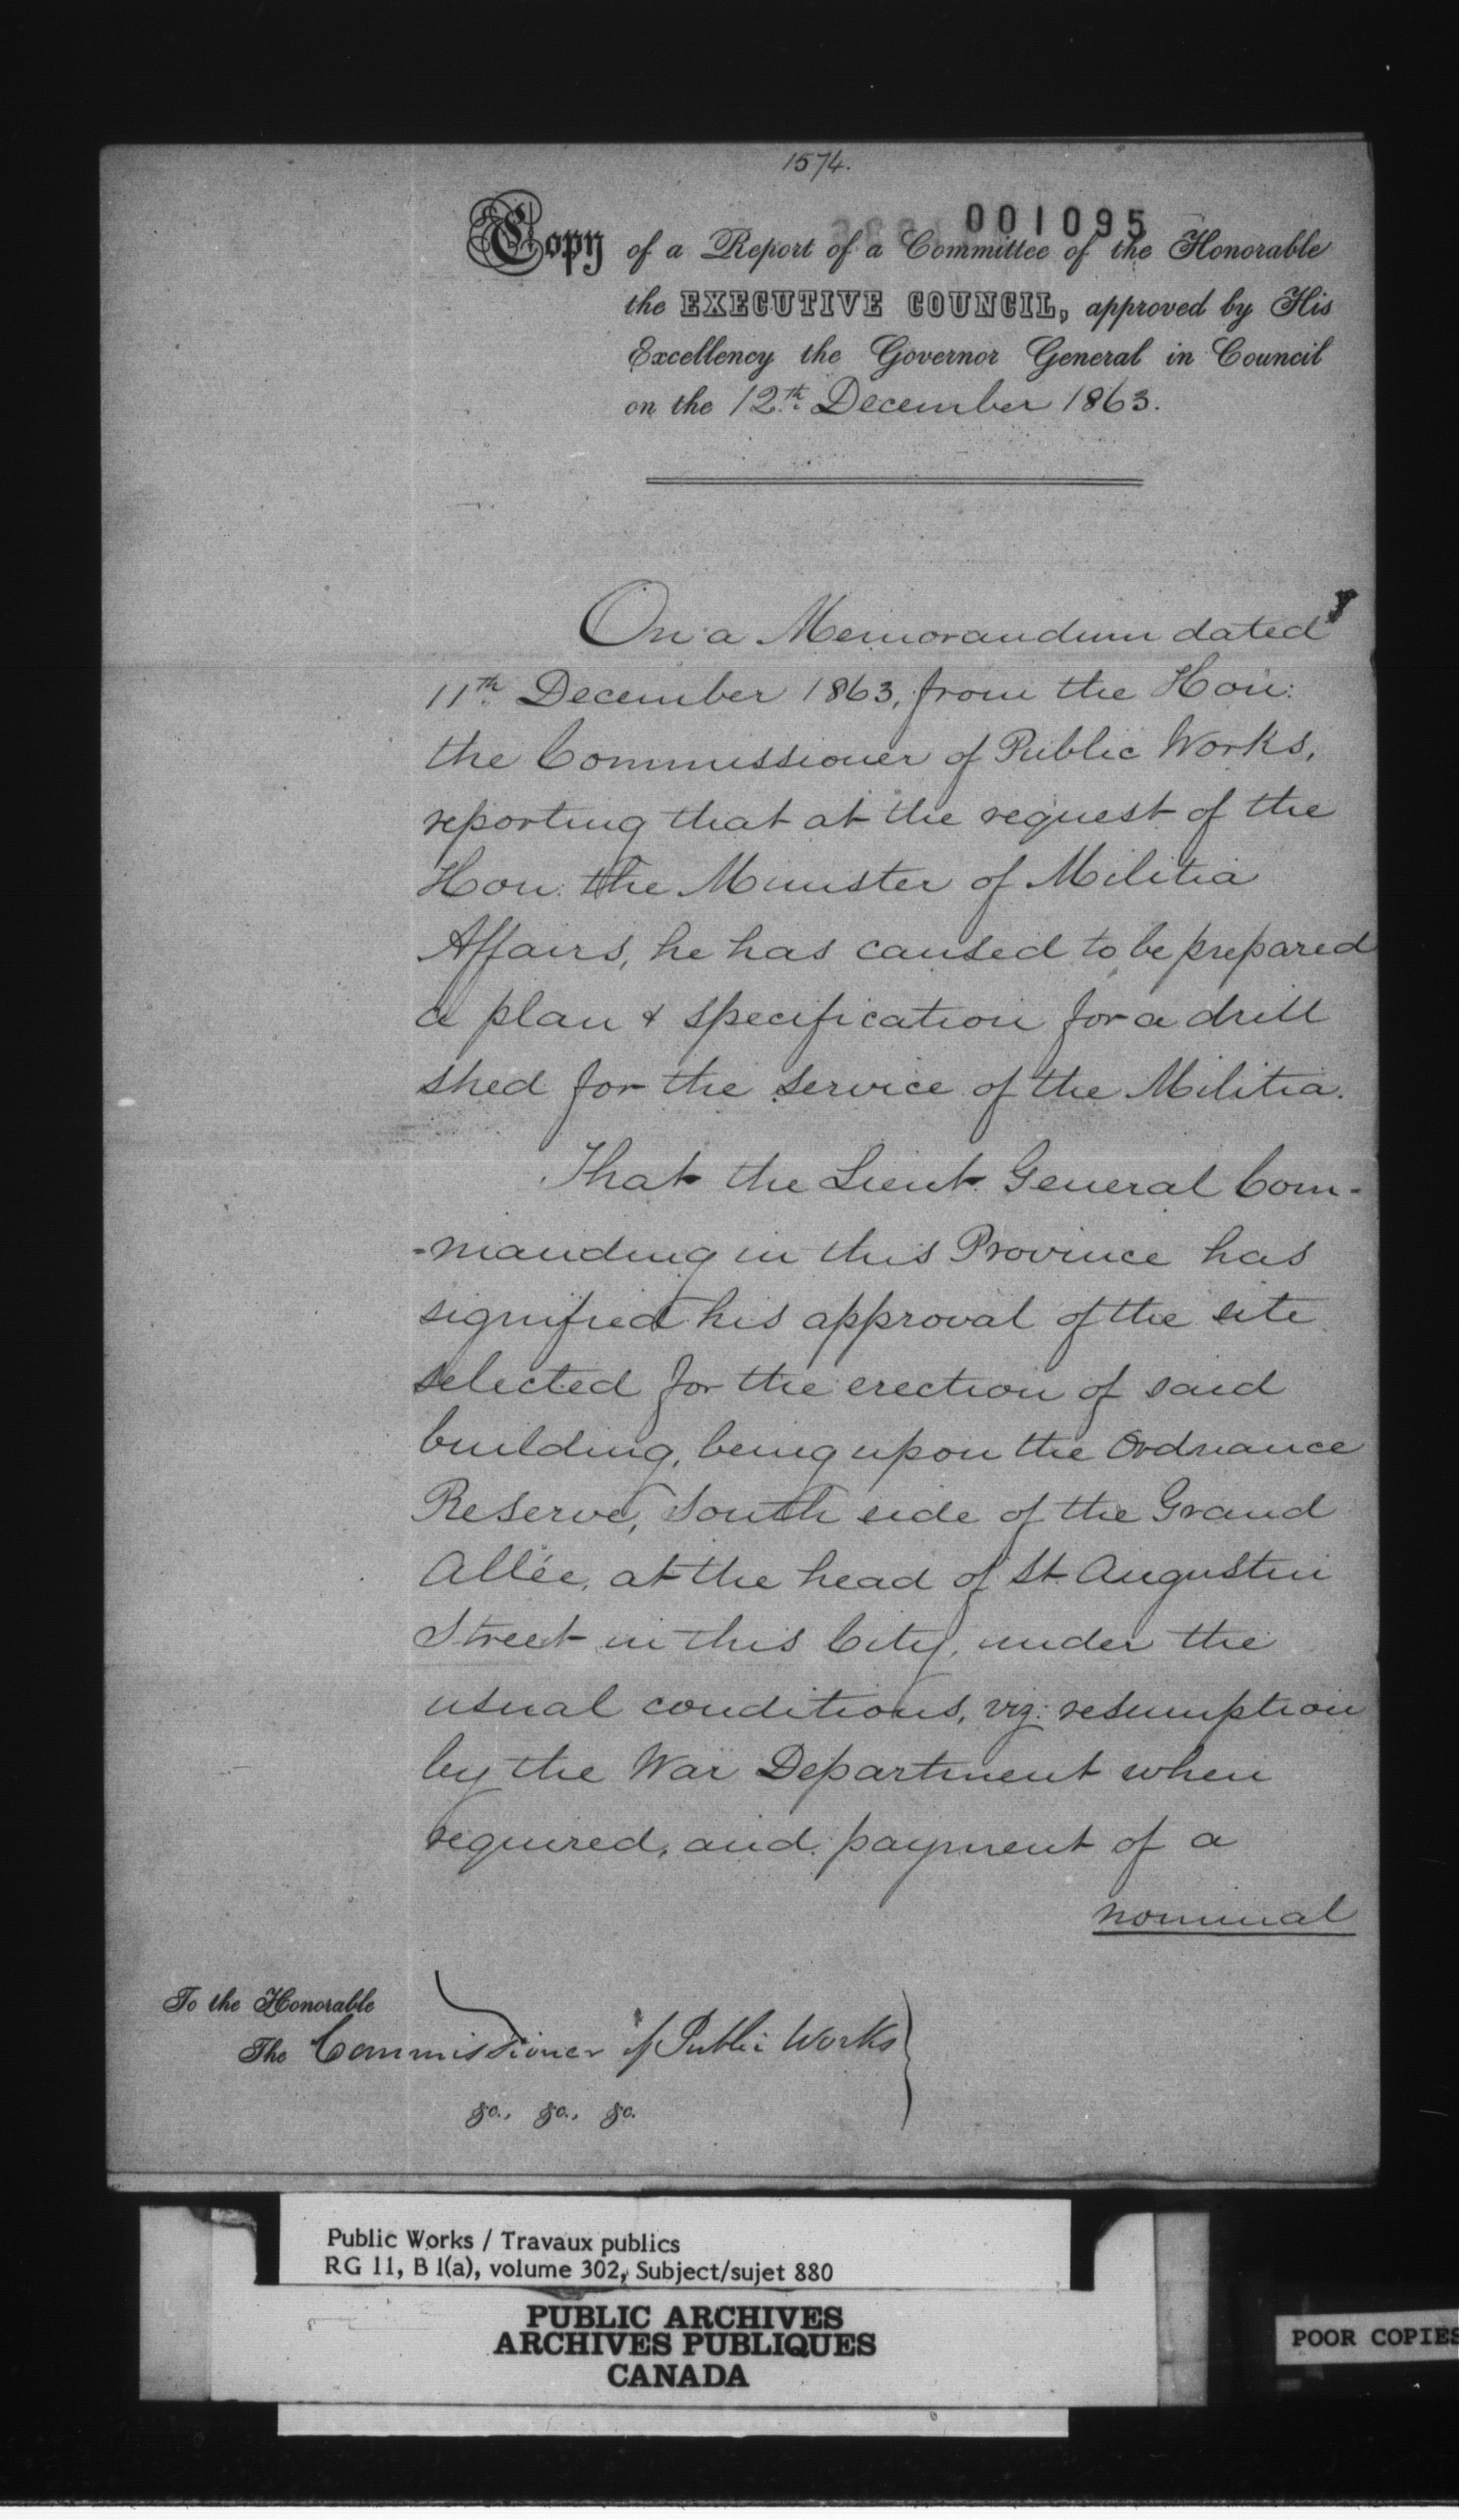 1574.
001095
Copy of a Report of a Committee of the Honorable
the EXECUTIVE COUNCIL, approved by His
Excellency the Governor General in Council
on the 12th. December 1863.
On a Memorandum dated
11th. December 1863, from the Hon:
the Commissioner of Public Works,
reporting that at the request of the
Hon: the Minister of Militia
Affairs, he has caused to be prepared
a plan & specification for a drill
shed for the service of the Militia.
That the Lieut. General Com-
-manding in this Province has
signified his approval of the site
selected for the erection of said
building, being upon the Ordnance
Reserve, South side of the Grand
Allée, at the head of St. Augustin
Street in this City, under the
usual conditions, viz: resumption
by the War Department when
required, and payment of a
nominal
To the Honorable
The Commissioner of Public Works
&c., &c., &c.
Public Works / Travaux publics
RG 11, B 1(a), volume 302, Subject/sujet 880
PUBLIC ARCHIVES
ARCHIVES PUBLIQUES
CANADA
POOR COPIES